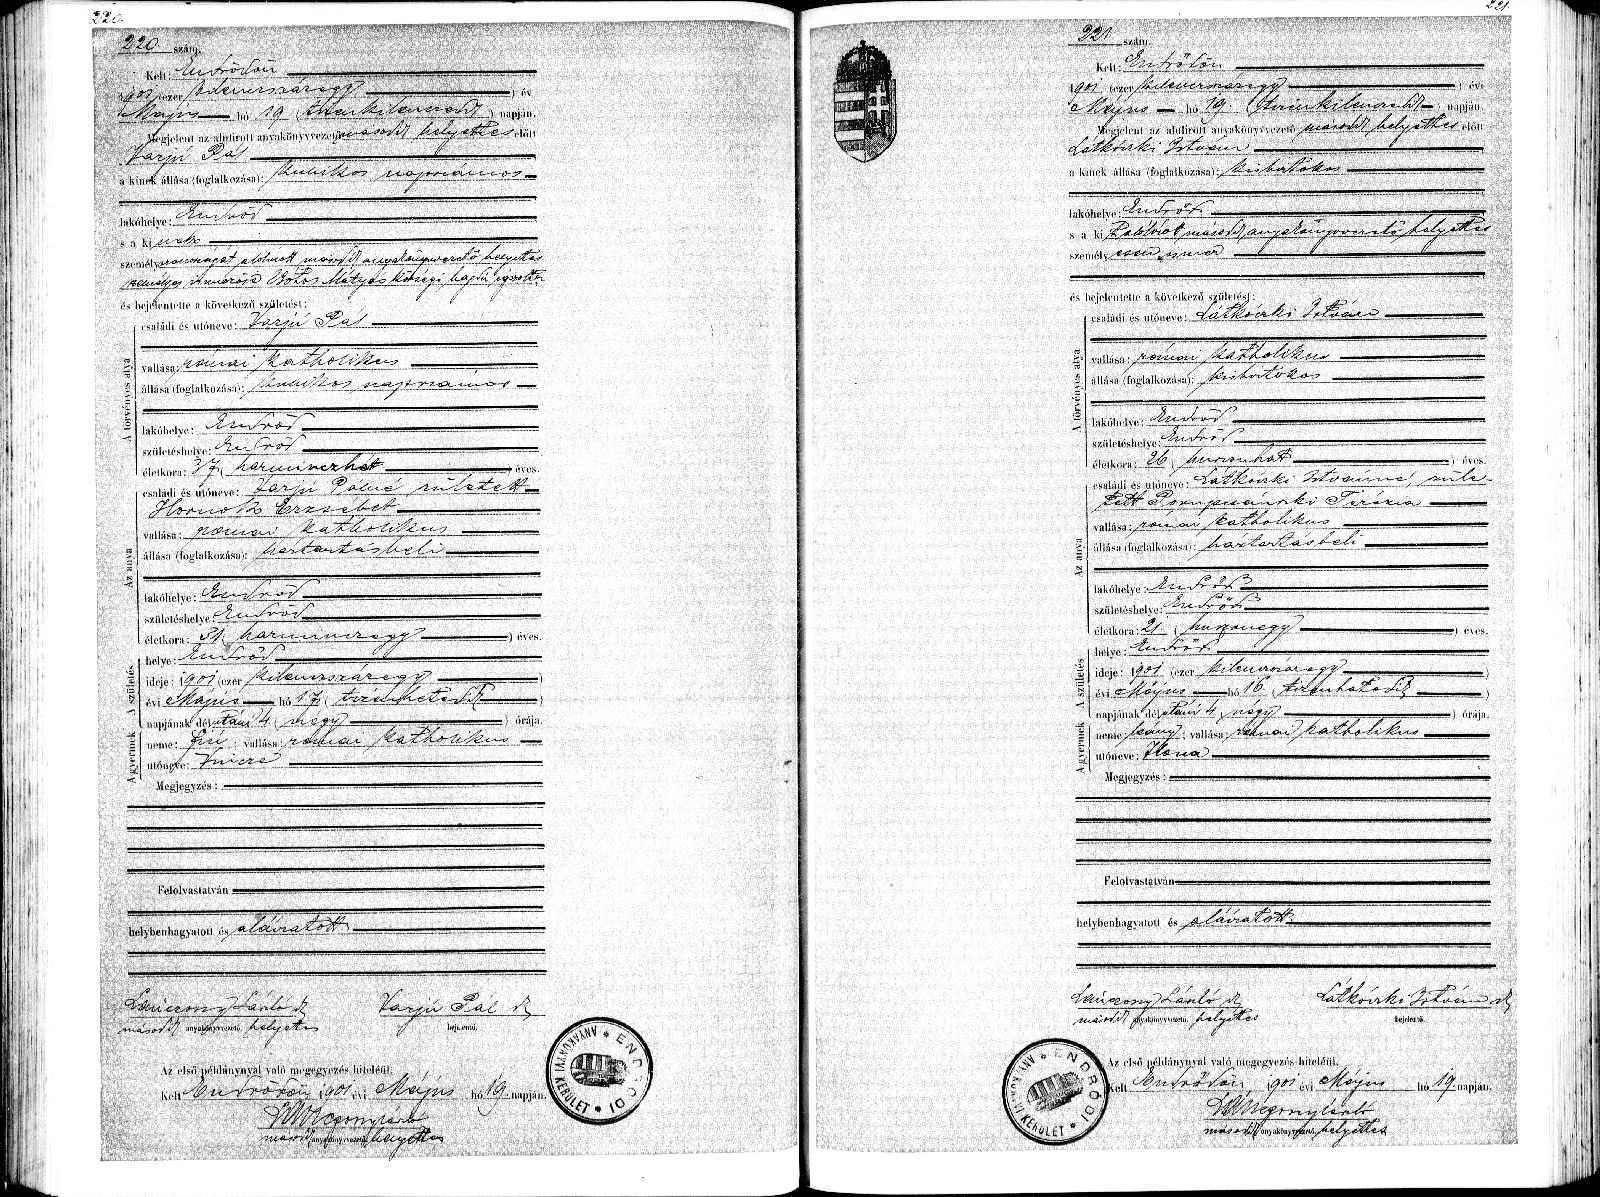 220
220 szám.
Kelt: Endrődön
1901 (ezer kilenczszázegy) évi
Május hó 19 (tizenkilenczedik) napján.
Megjelent az alulirott anyakönyvvezető másodk helyettes előtt
Varjú Pál
a kinek állása (foglalkozása): kubikos napszámos
lakóhelye: Endrőd
s a ki nek
személyazonosságát alulirott másodk anyakönyvvezető helyettes
személyes ismerőse Botos Mátyás községi hajdu igazolta
és bejelentette a következő születést:
A törvényes atya
családi és utóneve: Varjú Pál
vallása: római katholikus
állása (foglalkozása): kubikos napszámos
lakóhelye: Endrőd
születéshelye: Endrőd
életkora: 37 (harminczhét) éves.
Az anya
családi és utóneve: Varjú Pálné született
Hornok Erzsébet
vallása: római katholikus
állása (foglalkozása): háztartásbeli
lakóhelye: Endrőd
születéshelye: Endrőd
életkora: 31 (harminczegy) éves.
A születés
helye: Endrőd
ideje: 1901 (ezer kilenczszázegy)
évi Május hó 17 (tizenhetedik)
napjának délutáni 4 (négy) órája.
A gyermek
neme: fiú; vallása: római katholikus
utóneve: Imre
Megjegyzés:
Felolvastatván
helybenhagyatott és aláiratott.
Lanczony László sk
másodk anyakönyvvezető helyettes
Varjú Pál sk
bejelentő.
Az első példánynyal való megegyezés hiteléül.
Kelt Endrődön 1901 évi Május hó 19 napján.
Lanczony László
másodk anyakönyvvezető helyettes
ENDRŐDI ANYAKÖNYVI KERÜLET
221
221 szám.
Kelt: Endrődön
1901 (ezer kilenczszázegy) évi
Május hó 19 (tizenkilenczedik) napján.
Megjelent az alulirott anyakönyvvezető másodk helyettes előtt
Látkóczki István
a kinek állása (foglalkozása): kisbirtokos
lakóhelye: Endrőd
s a ki t alulirott másodk anyakönyvvezető helyettes
személyesen ismer
és bejelentette a következő születést:
A törvényes atya
családi és utóneve: Látkóczki István
vallása: római katholikus
állása (foglalkozása): kisbirtokos
lakóhelye: Endrőd
születéshelye: Endrőd
életkora: 26 (huszonhat) éves.
Az anya
családi és utóneve: Látkóczki Istvánné, szüle-
tett Terézia
vallása: római katholikus
állása (foglalkozása): háztartásbeli
lakóhelye: Endrőd
születéshelye: Endrőd
életkora: 21 (huszonegy) éves.
A születés
helye: Endrőd
ideje: 1901 (ezer kilenczszázegy)
évi Május hó 16 (tizenhatodik)
napjának délutáni 4 (négy) órája.
A gyermek
neme: leány; vallása: római katholikus
utóneve: Ilona
Megjegyzés:
Felolvastatván
helybenhagyatott és aláiratott.
Lanczony László sk
másodk anyakönyvvezető helyettes
Látkóczki István sk
bejelentő.
Az első példánynyal való megegyezés hiteléül.
Kelt Endrődön, 1901 évi Május hó 19 napján.
Lanczony László
másodk anyakönyvvezető helyettes
ENDRŐDI ANYAKÖNYVI KERÜLET